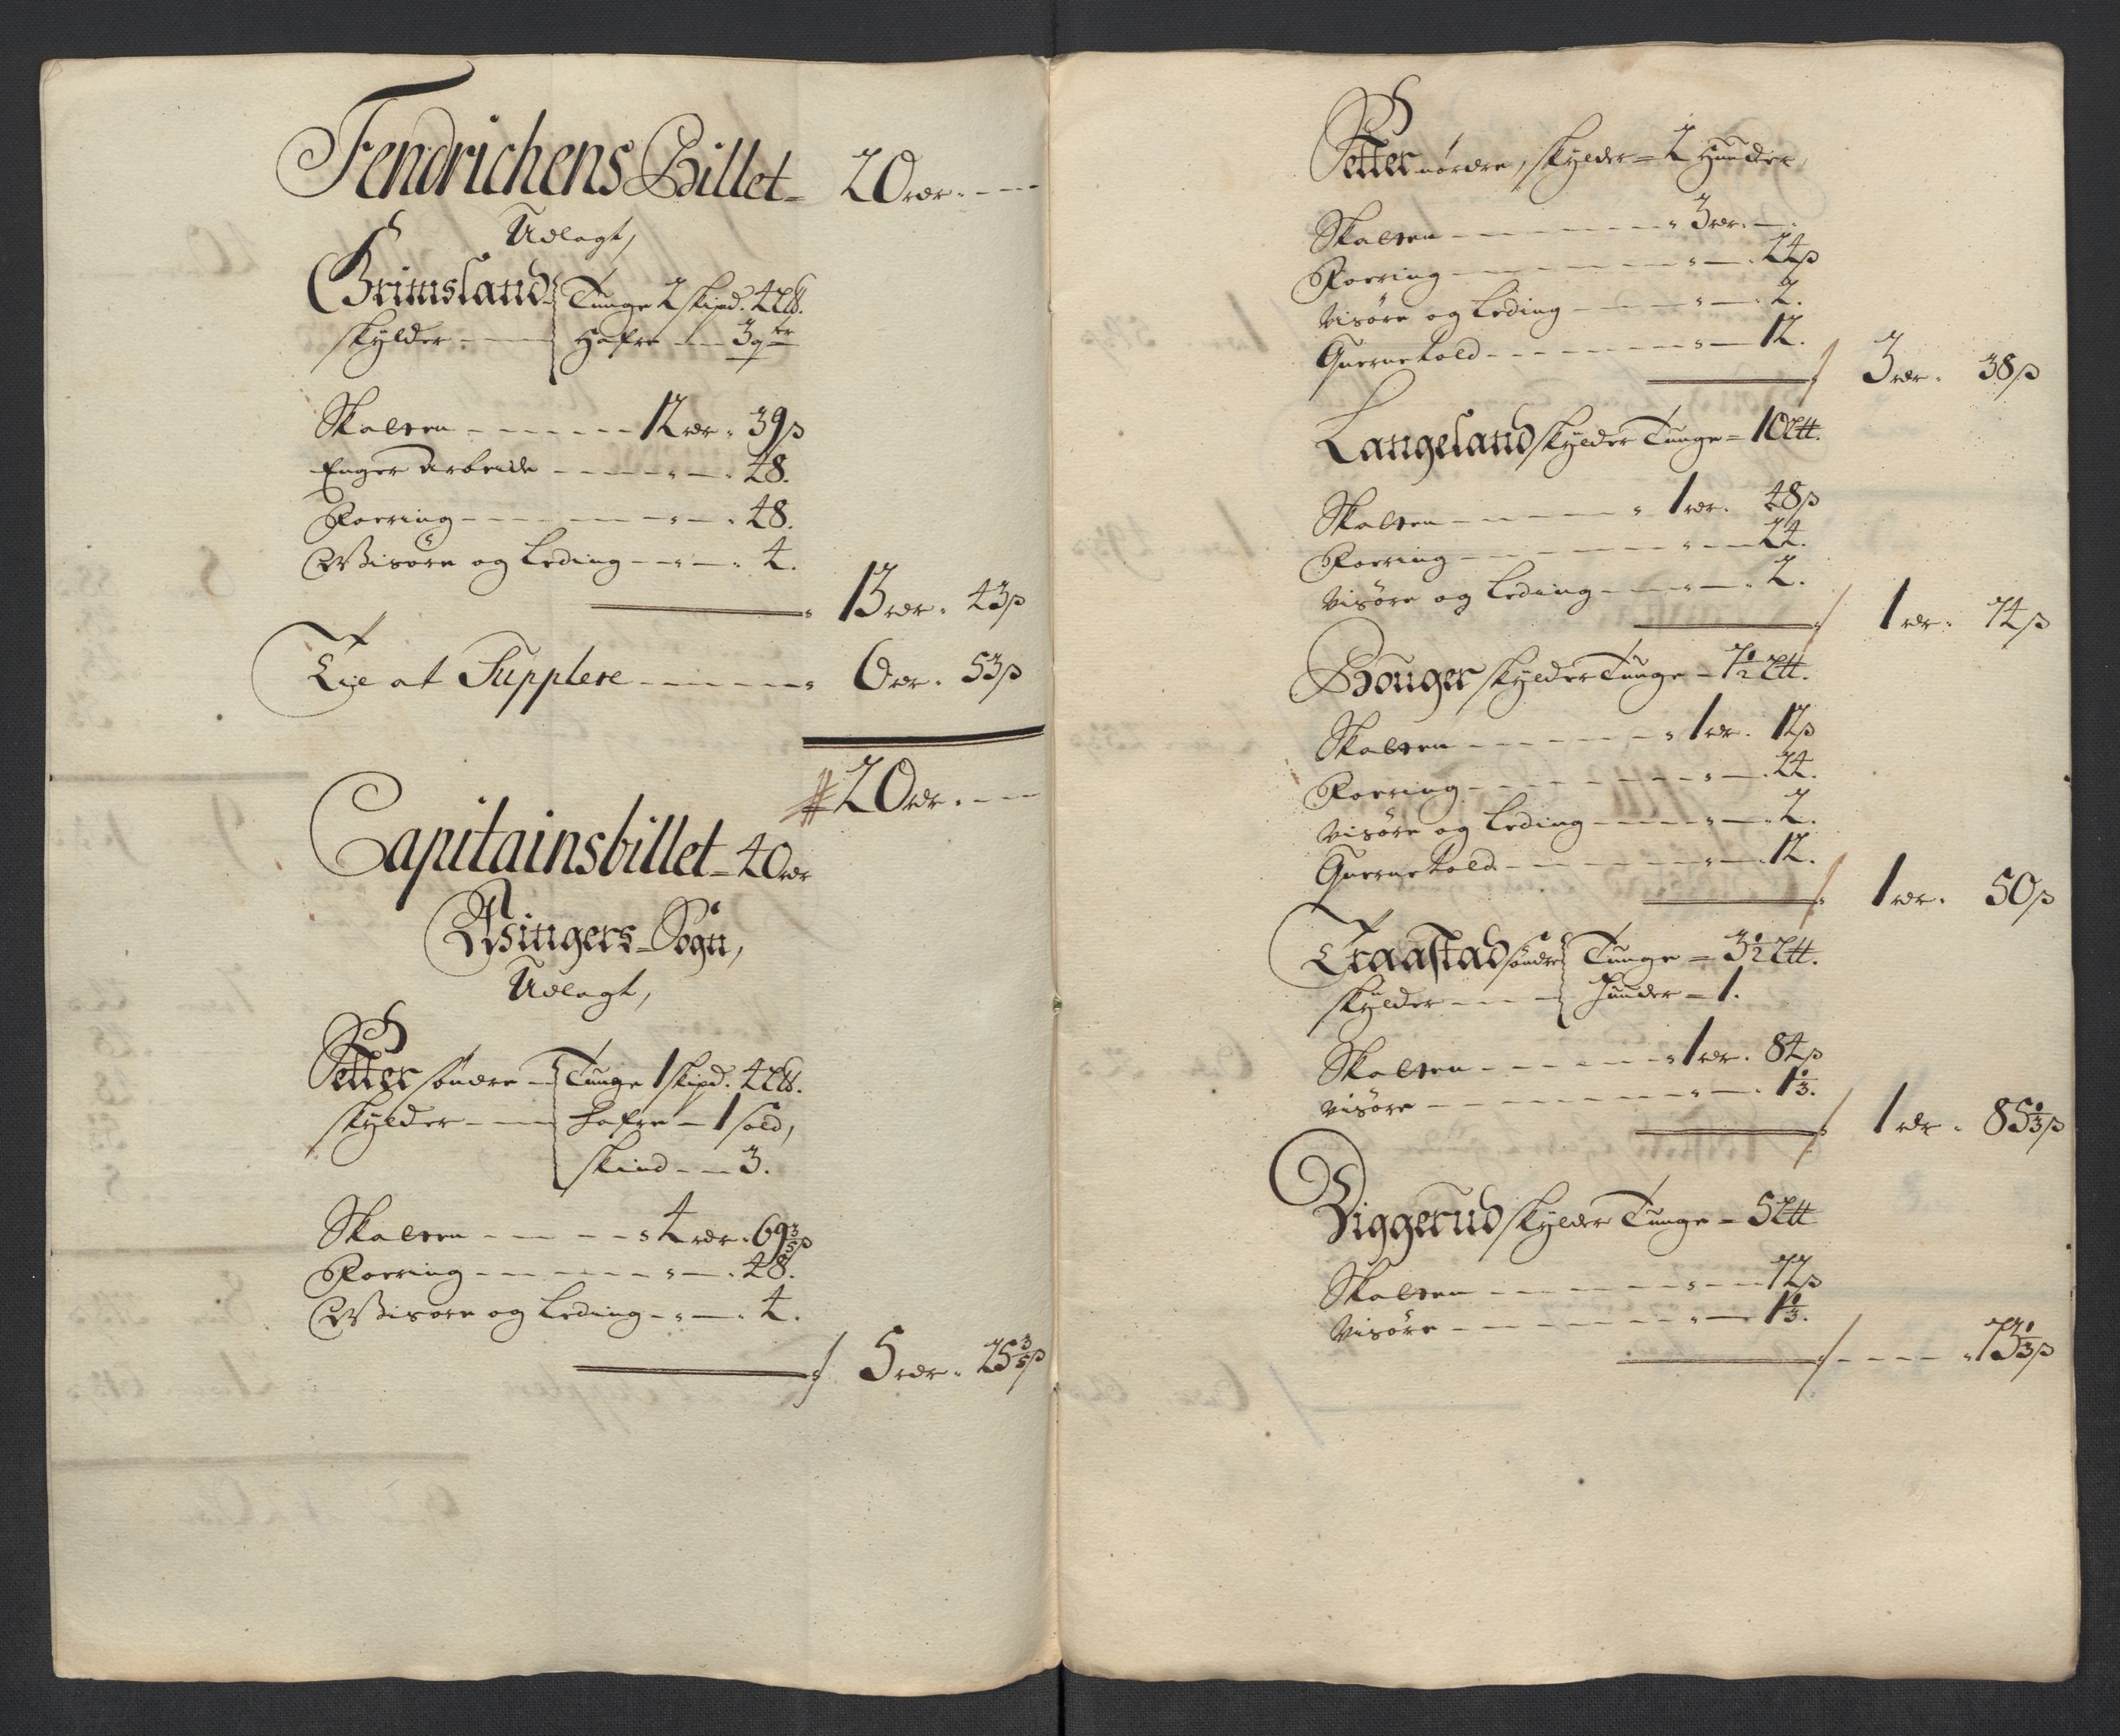 Fendrichens Billet = 20 rdr. - -
Udlagt,
Grimsland Tunge 2 skipd. 4 Ltt.
skylder Hafre - - 3 qtr
Skatten - - - - - 12 rdr. 39 ß
Enger Arbeide - - - - 48.
Foering - - - - - 48.
Wisøre og Leding - - - 4.
13 rdr. 43 ß
Til at Supplere - - - - 6 rdr. 53 ß
20 rdr. - -
Capitainsbillet = 40 rdr
Wingers Sogn,
Udlagt,
Setter søndre Tunge 1 skipd. 4 Ltt.
skylder Hafre - 1 sold,
skind - - 3.
Skatten - - - - 4 rdr. 69 3/5 ß
Foering - - - - - 48.
Wisøre og Leding - - - 4.
5 rdr. 25 3/5 ß
Setter nordre, skylder = 2 Hunder,
Skatten - - - - - 3 rdr. - .
Foering - - - - - 24 ß
Visøre og Leding - - - 2.
Quernetold - - - - - 12.
3 rdr. 38 ß
Langeland skylder Tunge = 10 Ltt.
Skatten - - - - - 1 rdr. 48 ß
Foering - - - - - 24.
Visøre og Leding - - - 2.
1 rdr. 74 ß
Houger skylder Tunge = 7 1/2 Ltt.
Skatten - - - - - 1 rdr. 12 ß
Foering - - - - - 24.
Visøre og Leding - - - 2.
Quernetold - - - - - 12.
1 rdr. 50 ß
Traastad søndre Tunge = 3 1/2 Ltt.
skylder - - - Hunder = 1.
Skatten - - - - - 1 rdr. 84 ß
Visøre - - - - - 1 1/3.
1 rdr. 85 1/3 ß
Viggerud skylder Tunge = 5 Ltt
Skatten - - - - - 72 ß
Visøre - - - - - 1 1/3.
- - - - 73 1/3 ß